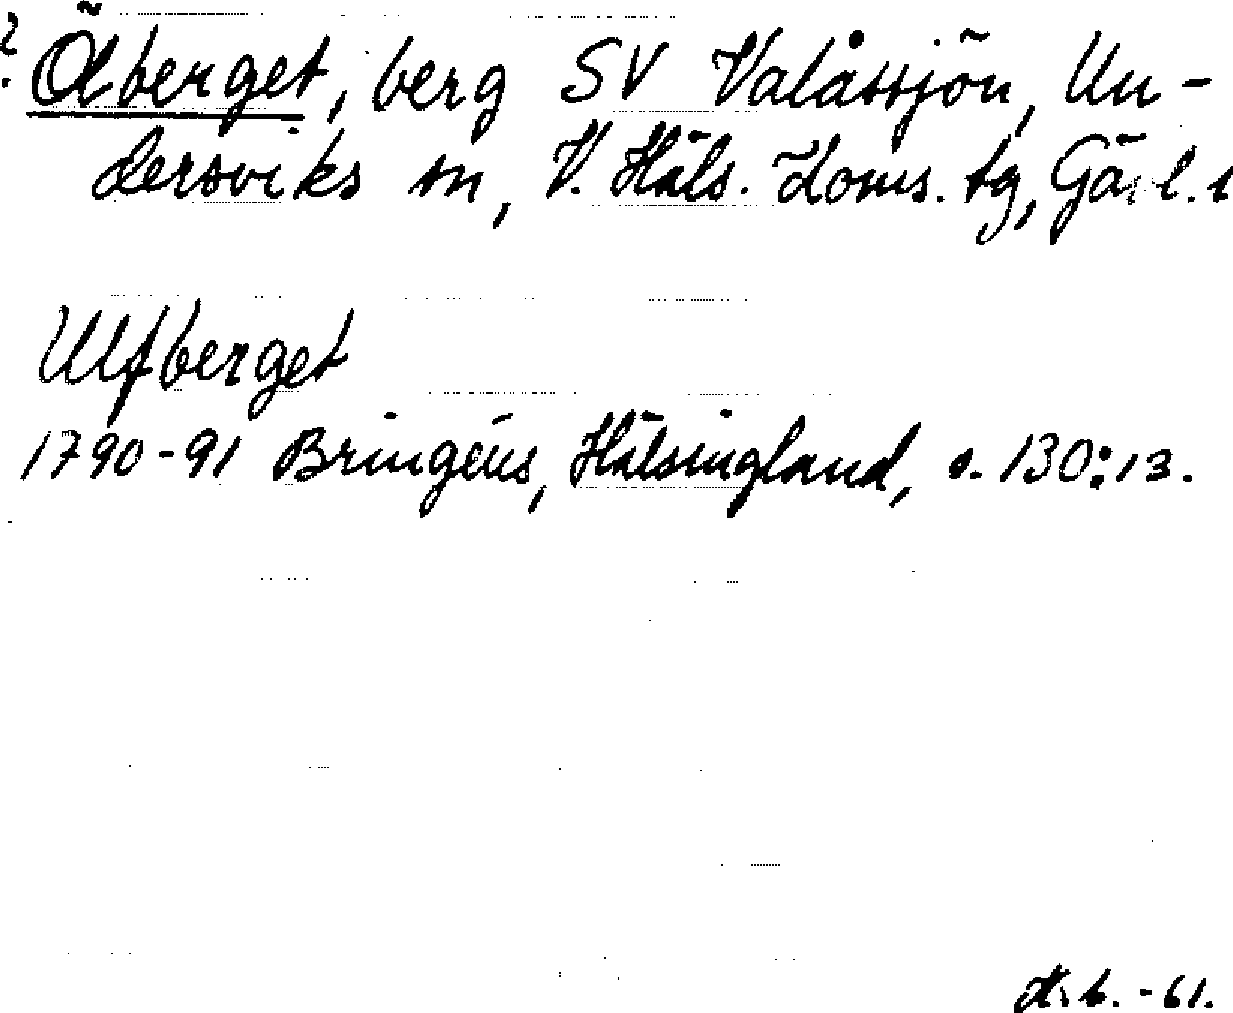 ? Ölberget, berg SV Valåssjön, Un-
dersviks sn, V. Häls. doms. tg, Gävl. l
Ulfberget
1790-91 Bringéus, Hälsingland, s. 130:13.
-61.